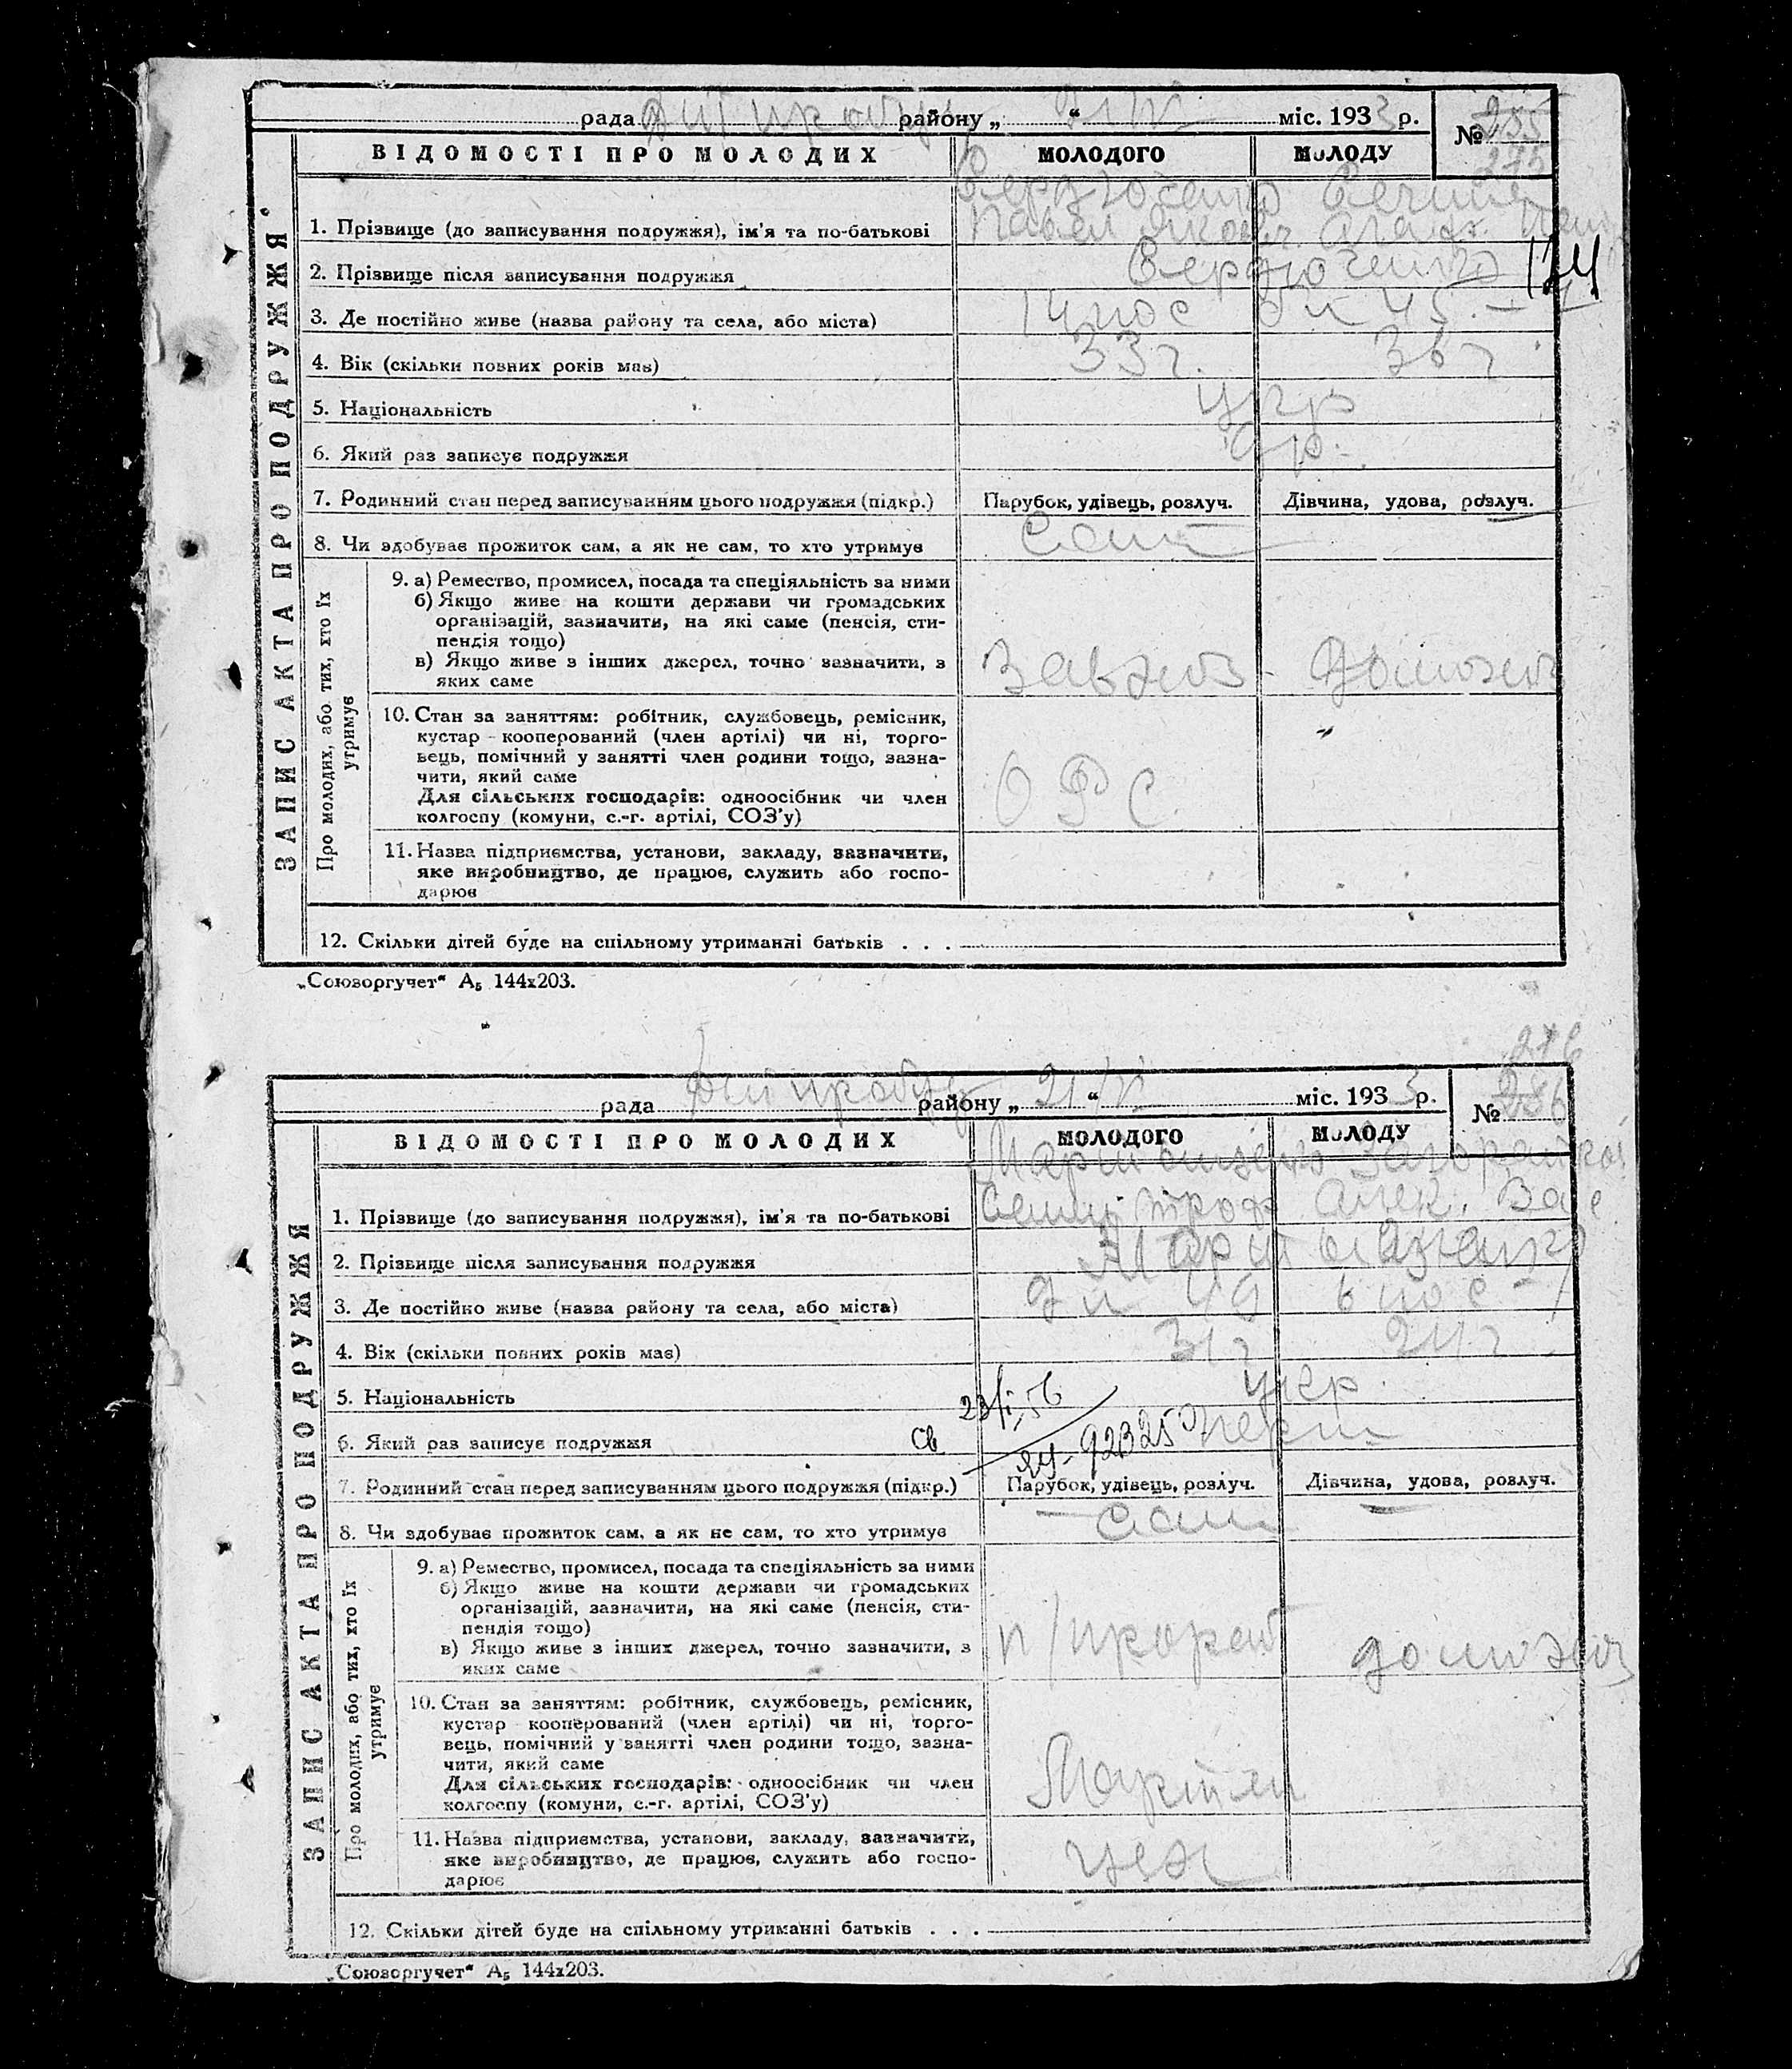 рада району „ “ міс. 1933 р.
№ 285
275
ВІДОМОСТІ ПРО МОЛОДИХ МОЛОДОГО МОЛОДУ
ЗАПИС АКТА ПРО ПОДРУЖЖЯ
Сердюченко
1. Прізвище (до записування подружжя), ім'я та по-батькові Павел Яковл. Агаф.
2. Прізвище після записування подружжя Сердюченко
3. Де постійно живе (назва району та села, або міста) 14 пос
4. Вік (скільки повних років має) 33 г. 36 г
5. Національність укр
6. Який раз записує подружжя
7. Родинний стан перед записуванням цього подружжя (підкр.) Парубок, удівець, розлуч. Дівчина, удова, розлуч.
8. Чи здобуває прожиток сам, а як не сам, то хто утримує Сам
Про молодих, або тих, хто їх утримує
9. а) Ремество, промисел, посада та спеціяльність за ними
б) Якщо живе на кошти держави чи громадських
організацій, зазначити, на які саме (пенсія, сти-
пендія тощо)
в) Якщо живе з інших джерел, точно зазначити, з
яких саме
Домохоз
10. Стан за заняттям: робітник, службовець, ремісник,
кустар - кооперований (член артілі) чи ні, торго-
вець, помічний у занятті член родини тощо, зазна-
чити, який саме
Для сільських господарів: одноосібник чи член
колгоспу (комуни, с.-г. артілі, СОЗ'у)
11. Назва підприємства, установи, закладу, зазначити,
яке виробництво, де працює, служить або госпо-
дарює
12. Скільки дітей буде на спільному утриманні батьків . . .
„Союзоргучет“ А5 144х203.
276
рада району „ 21/VI “ міс. 1933 р.
№ 286
ВІДОМОСТІ ПРО МОЛОДИХ МОЛОДОГО МОЛОДУ
ЗАПИС АКТА ПРО ПОДРУЖЖЯ
Мартыненко
1. Прізвище (до записування подружжя), ім'я та по-батькові Троф Алек. Вас.
2. Прізвище після записування подружжя
3. Де постійно живе (назва району та села, або міста) 6 пос
4. Вік (скільки повних років має) 31 г 24 г
5. Національність укр
23/I, 56
6. Який раз записує подружжя Св перш
ЯЧ - 92325
7. Родинний стан перед записуванням цього подружжя (підкр.) Парубок, удівець, розлуч. Дівчина, удова, розлуч.
8. Чи здобуває прожиток сам, а як не сам, то хто утримує сам
Про молодих, або тих, хто їх утримує
9. а) Ремество, промисел, посада та спеціяльність за ними
б) Якщо живе на кошти держави чи громадських
організацій, зазначити, на які саме (пенсія, сти-
пендія тощо)
в) Якщо живе з інших джерел, точно зазначити, з
яких саме
п/прораб домохоз
10. Стан за заняттям: робітник, службовець, ремісник,
кустар кооперований (член артілі) чи ні, торго-
вець, помічний у занятті член родини тощо, зазна-
чити, який саме
Для сільських господарів: одноосібник чи член
колгоспу (комуни, с.-г. артілі, СОЗ'у)
Мартен
11. Назва підприємства, установи, закладу, зазначити,
яке виробництво, де працює, служить або госпо-
дарює
цех
12. Скільки дітей буде на спільному утриманні батьків . . .
„Союзоргучет“ А5 144х203.